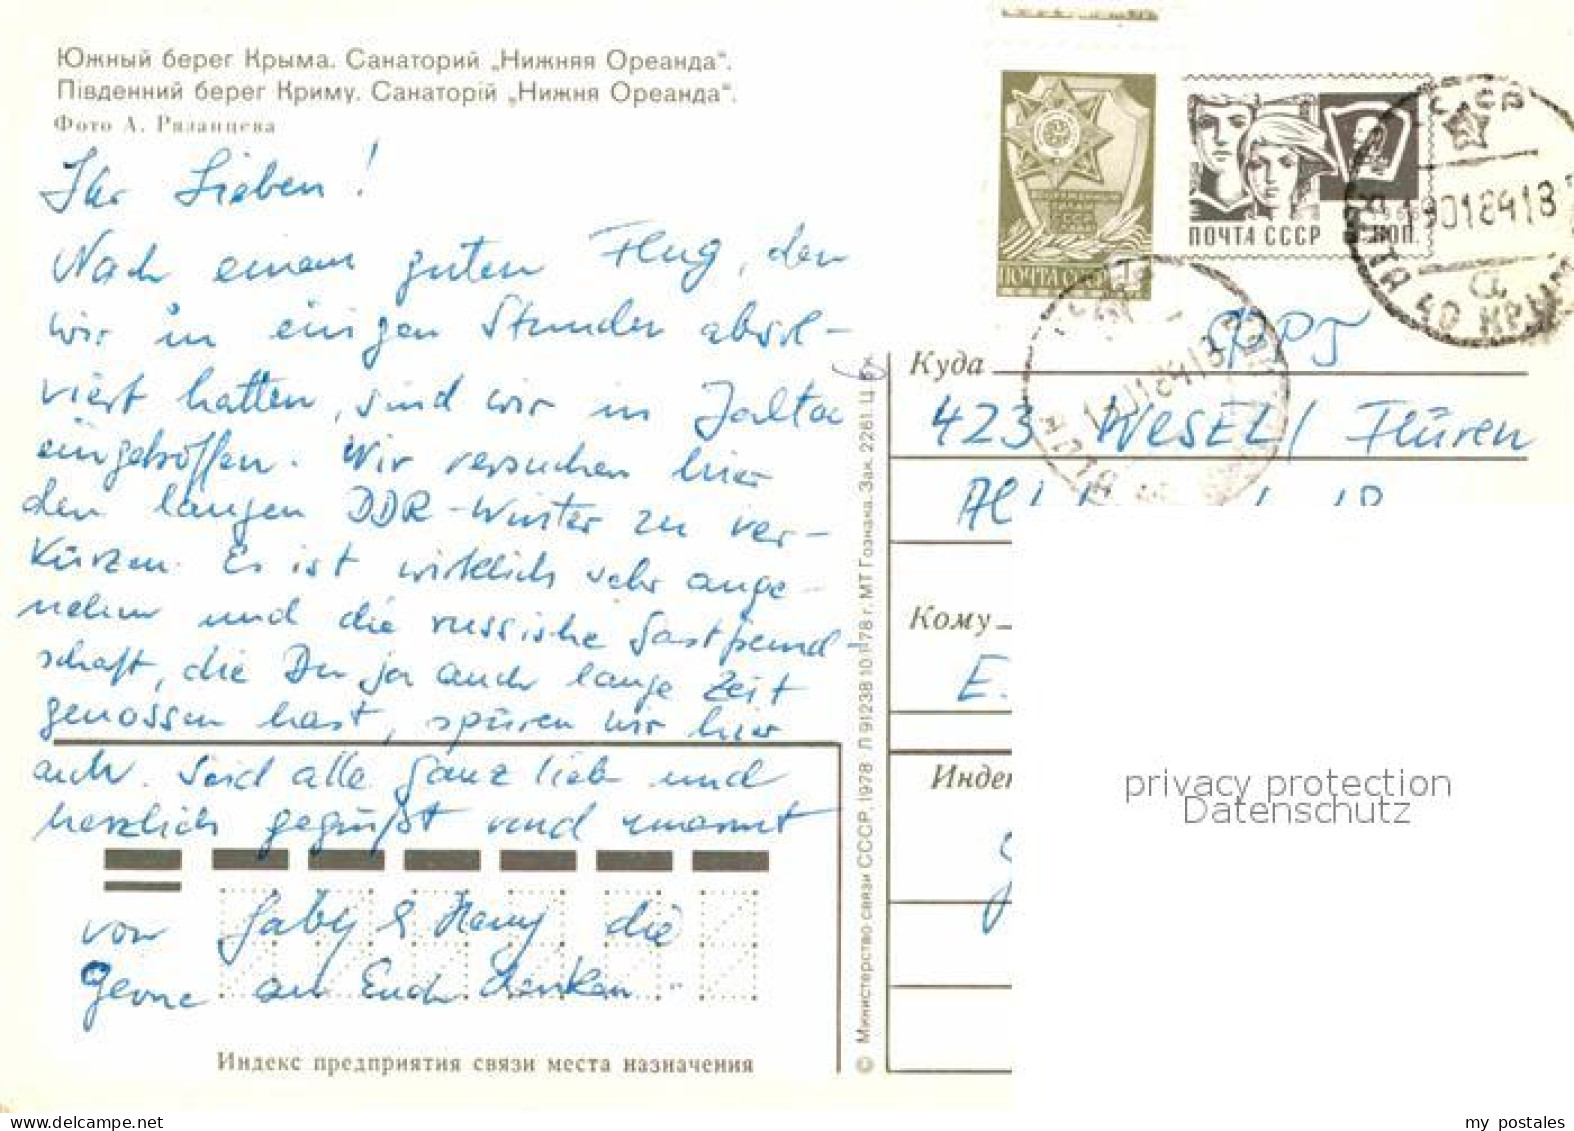 Южный берег Крыма. Санаторий „Нижняя Ореанда“.
Південний берег Криму. Санаторій „Нижня Ореанда“.
Фото А. Рязанцева
Ihr Lieben!
Nach einem guten Flug, den
wir in einigen Stunden absol-
viert hatten, sind wir in Jalta
eingetroffen. Wir versuchen hier
den langen DDR-Winter zu ver-
kürzen. Es ist wirklich sehr ange-
nehm und die russische Gastfreund-
schaft, die Du ja auch lange Zeit
genossen hast, spüren wir hier
auch. Seid alle ganz lieb und
herzlich gegrüßt und umarmt
von Gaby & die
Gerne an Euch denken
Индекс предприятия связи места назначения
© Министерство связи СССР, 1978 Л 91238 10 I 78 г. МТ Гознака. Зак. 2261. Ц. 3 к
ПОЧТА СССР
ПОЧТА СССР 1966 1 КОП.
СССР
190184 18
а
ЯЛТА 40 КРЫМ
Куда
423 WESEL/ Flüren
Кому
E.
Инде
privacy protection
Datenschutz
my postales